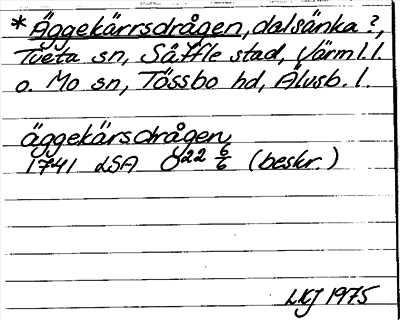 * Äggekärrsdrågen, dalsänka?,
Tveta sn, Säffle stad, Värml. l.
o. Mo sn, Tössbo hd, Älvsb. l.
äggekärsdrågen
1741 LSA Ö22 6/6 (beskr.)
LKJ 1975